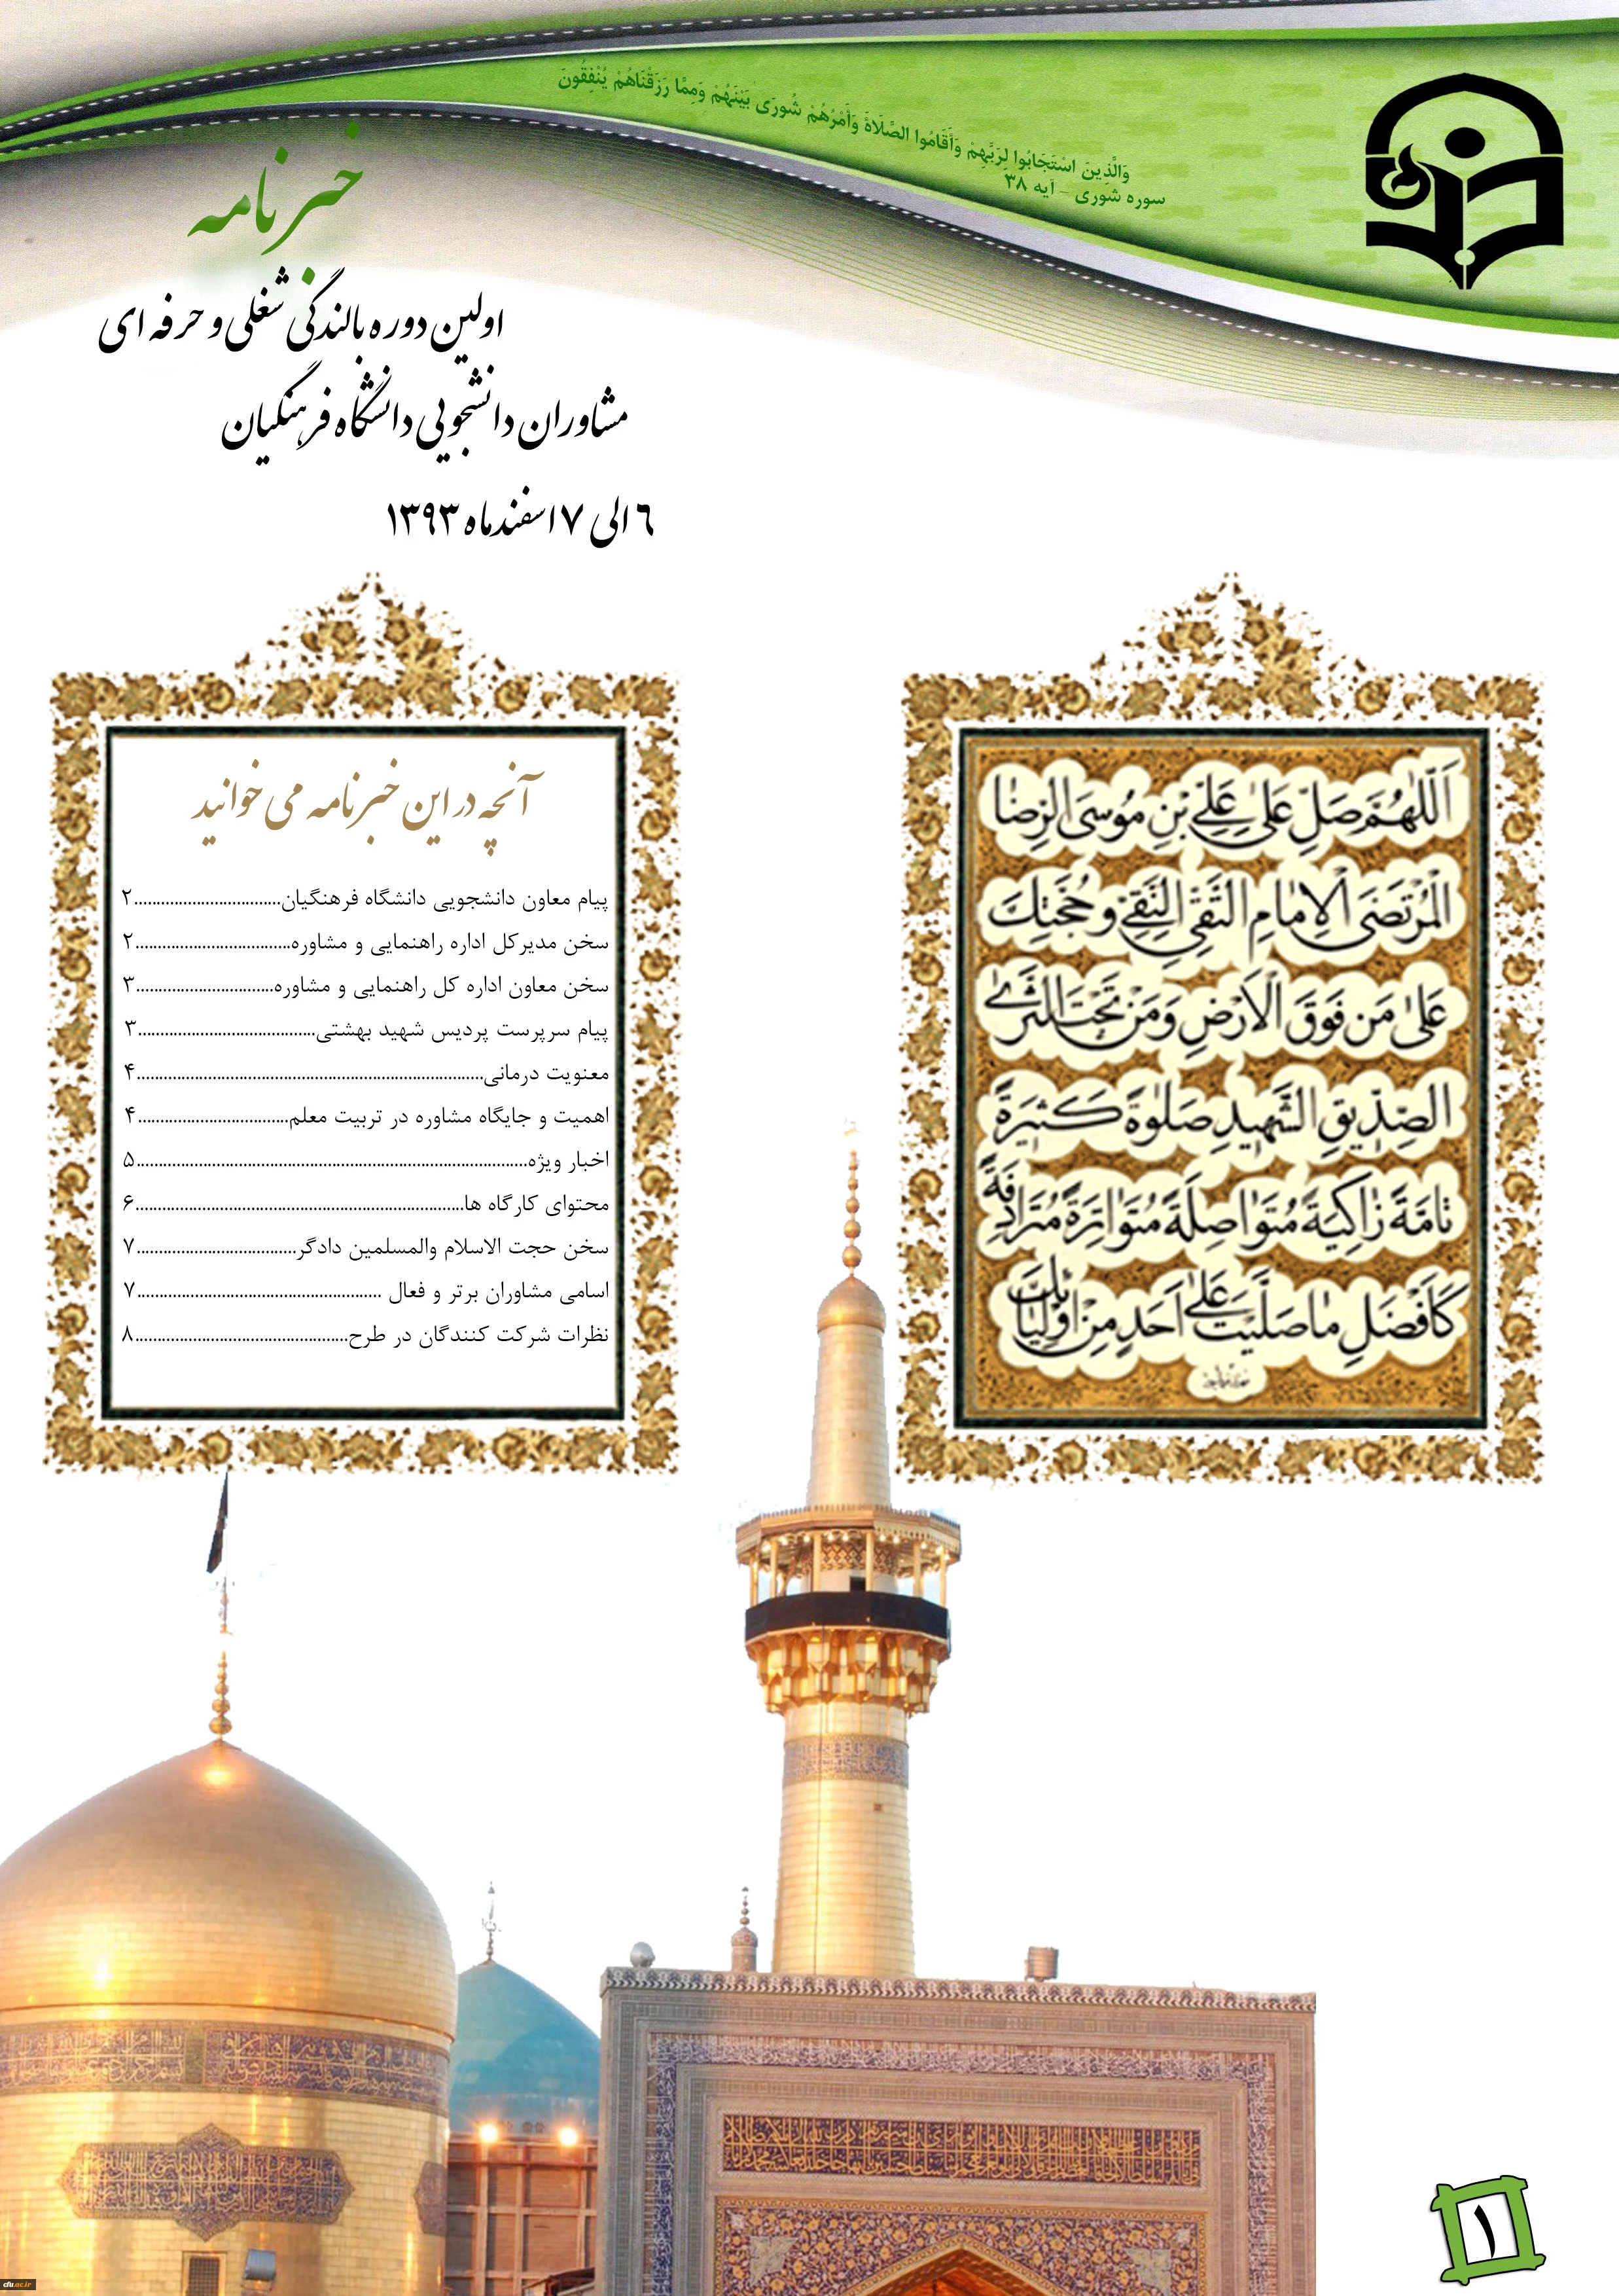 وَالَّذِينَ اسْتَجَابُوا لِرَبِّهِمْ وَأَقَامُوا الصَّلَاةَ وَأَمْرُهُمْ شُورَى بَيْنَهُمْ وَمِمَّا رَزَقْنَاهُمْ يُنْفِقُونَ
سوره شوری - آیه ۳۸
خبرنامه
اولین دوره بالندگی شغلی و حرفه ای
مشاوران دانشجویی دانشگاه فرهنگیان
۶ الی ۷ اسفندماه ۱۳۹۳
اَللّهُمَّ صَلِّ عَلى عَلِيِّ بْنِ مُوسَى الرِّضَا
الْمُرْتَضَى الْاِمَامِ التَّقِيِّ النَّقِيِّ وَ حُجَّتِكَ
عَلى مَن فَوْقَ الْاَرْضِ وَمَنْ تَحْتَ الثَّرى
الصِّدّيقِ الشَّهيدِ صَلوةً كَثيرَةً
تامَّةً زاكِيَةً مُتَواصِلَةً مُتَواتِرَةً مُتَرادِفَةً
كَاَفْضَلِ ما صَلَّيْتَ عَلى اَحَدٍ مِنْ اَوْلِيائِكَ
آنچه در این خبرنامه می خوانید
پیام معاون دانشجویی دانشگاه فرهنگیان................................۲
سخن مدیرکل اداره راهنمایی و مشاوره..................................۲
سخن معاون اداره کل راهنمایی و مشاوره..............................۳
پیام سرپرست پردیس شهید بهشتی.......................................۳
معنویت درمانی.............................................................................۴
اهمیت و جایگاه مشاوره در تربیت معلم.................................۴
اخبار ویژه.......................................................................................۵
محتوای کارگاه ها.........................................................................۶
سخن حجت الاسلام والمسلمین دادگر...................................۷
اسامی مشاوران برتر و فعال ......................................................۷
نظرات شرکت کنندگان در طرح...............................................۸
۱
cfu.ac.ir